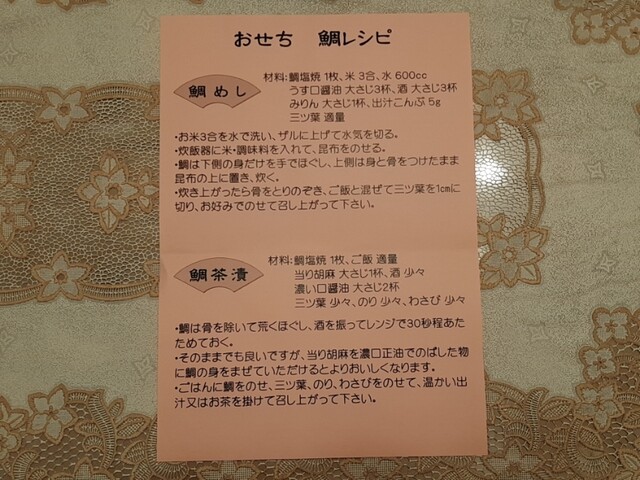 おせち　鯛レシピ
鯛めし
材料:鯛塩焼 1枚、米 3合、水 600cc
うす口醤油 大さじ3杯、酒 大さじ3杯
みりん 大さじ1杯、出汁こんぶ 5g
三ツ葉 適量
・お米3合を水で洗い、ザルに上げて水気を切る。
・炊飯器に米・調味料を入れて、昆布をのせる。
・鯛は下側の身だけを手でほぐし、上側は身と骨をつけたまま
昆布の上に置き、炊く。
・炊き上がったら骨をとりのぞき、ご飯と混ぜて三ツ葉を1cmに
切り、お好みでのせて召し上がって下さい。
鯛茶漬
材料:鯛塩焼 1枚、ご飯 適量
当り胡麻 大さじ1杯、酒 少々
濃い口醤油 大さじ2杯
三ツ葉 少々、のり 少々、わさび 少々
・鯛は骨を除いて荒くほぐし、酒を振ってレンジで30秒程あた
ためておく。
・そのままでも良いですが、当り胡麻を濃口正油でのばした物
に鯛の身をまぜていただけるとよりおいしくなります。
・ごはんに鯛をのせ、三ツ葉、のり、わさびをのせて、温かい出
汁又はお茶を掛けて召し上がって下さい。